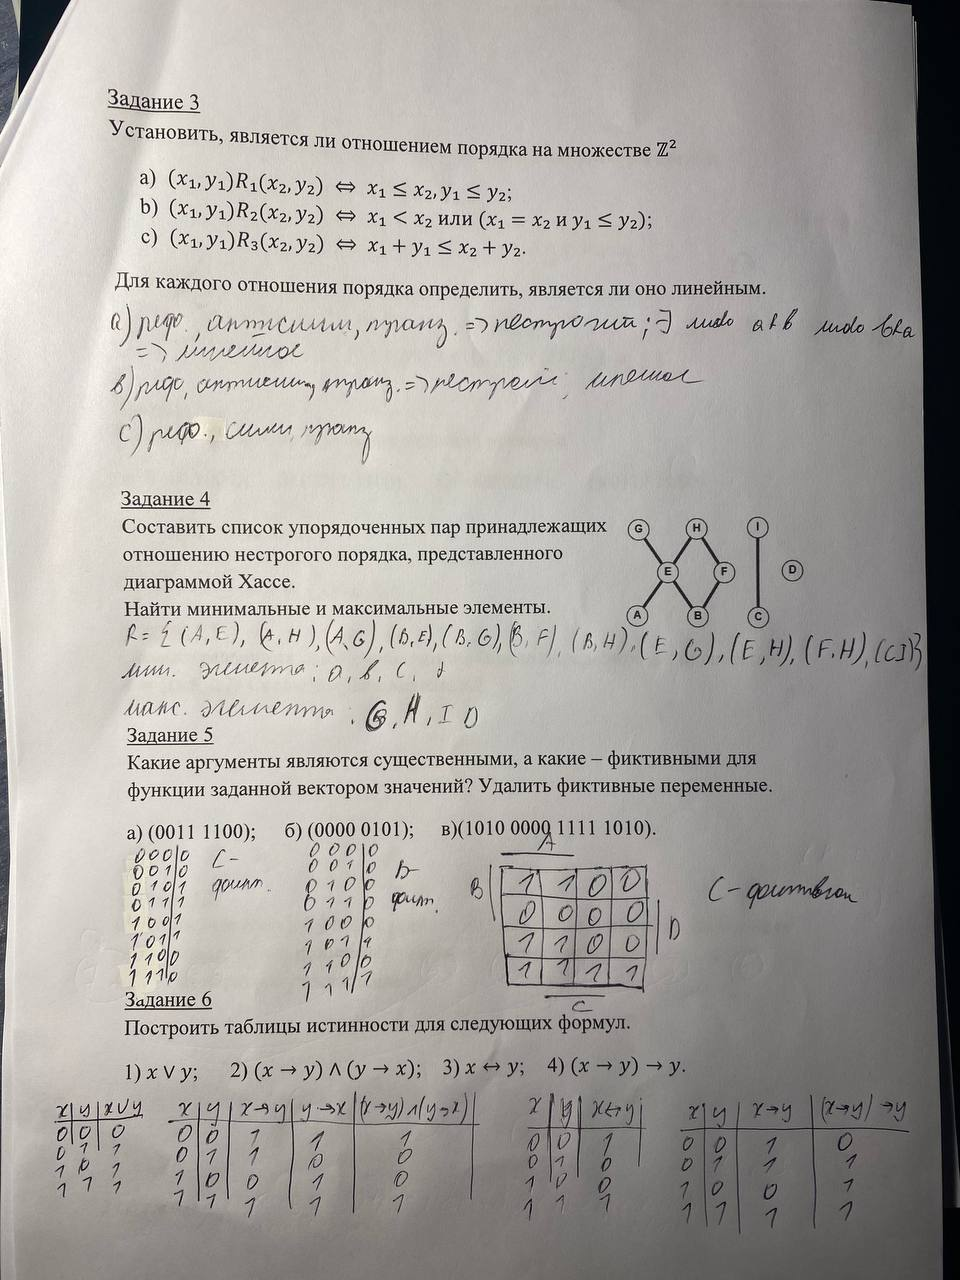 Задание 3
Установить, является ли отношением порядка на множестве ℤ²
a) (x₁, y₁)R₁(x₂, y₂) ⇔ x₁ ≤ x₂, y₁ ≤ y₂;
b) (x₁, y₁)R₂(x₂, y₂) ⇔ x₁ < x₂ или (x₁ = x₂ и y₁ ≤ y₂);
c) (x₁, y₁)R₃(x₂, y₂) ⇔ x₁ + y₁ ≤ x₂ + y₂.
Для каждого отношения порядка определить, является ли оно линейным.
a) рефл., антисимм, транз. => нестрогий; либо aRb либо bRa
=> линейное
в) рефл, антисимм, транз. => нестрогий;
c) рефл., симм, транз
Задание 4
Составить список упорядоченных пар принадлежащих
отношению нестрогого порядка, представленного
диаграммой Хассе.
Найти минимальные и максимальные элементы.
G H I
E F D
A B C
R = {(A,E), (A,H), (A,G), (B,E), (B,G), (B,F), (B,H), (E,G), (E,H), (F,H), (CI)}
мин. элементы: a, в, c, d
макс. элементы: G, H, I D
Задание 5
Какие аргументы являются существенными, а какие – фиктивными для
функции заданной вектором значений? Удалить фиктивные переменные.
а) (0011 1100); б) (0000 0101); в)(1010 0000 1111 1010).
000|0 C-
001|0 фикт.
010|1
011|1
100|1
101|1
110|0
111|0
000|0
001|0 B-
010|0 фикт.
011|0
100|0
101|1
110|0
111|1
A
B 1 1 0 0
0 0 0 0
1 1 0 0 D
1 1 1 1
C
C - фиктивная
Задание 6
Построить таблицы истинности для следующих формул.
1) x ∨ y; 2) (x → y) ∧ (y → x); 3) x ↔ y; 4) (x → y) → y.
x y x∨y
0 0 0
0 1 1
1 0 1
1 1 1
x y x→y y→x (x→y)∧(y→x)
0 0 1 1 1
0 1 1 0 0
1 0 0 1 0
1 1 1 1 1
x y x↔y
0 0 1
0 1 0
1 0 0
1 1 1
x y x→y (x→y)→y
0 0 1 0
0 1 1 1
1 0 0 1
1 1 1 1